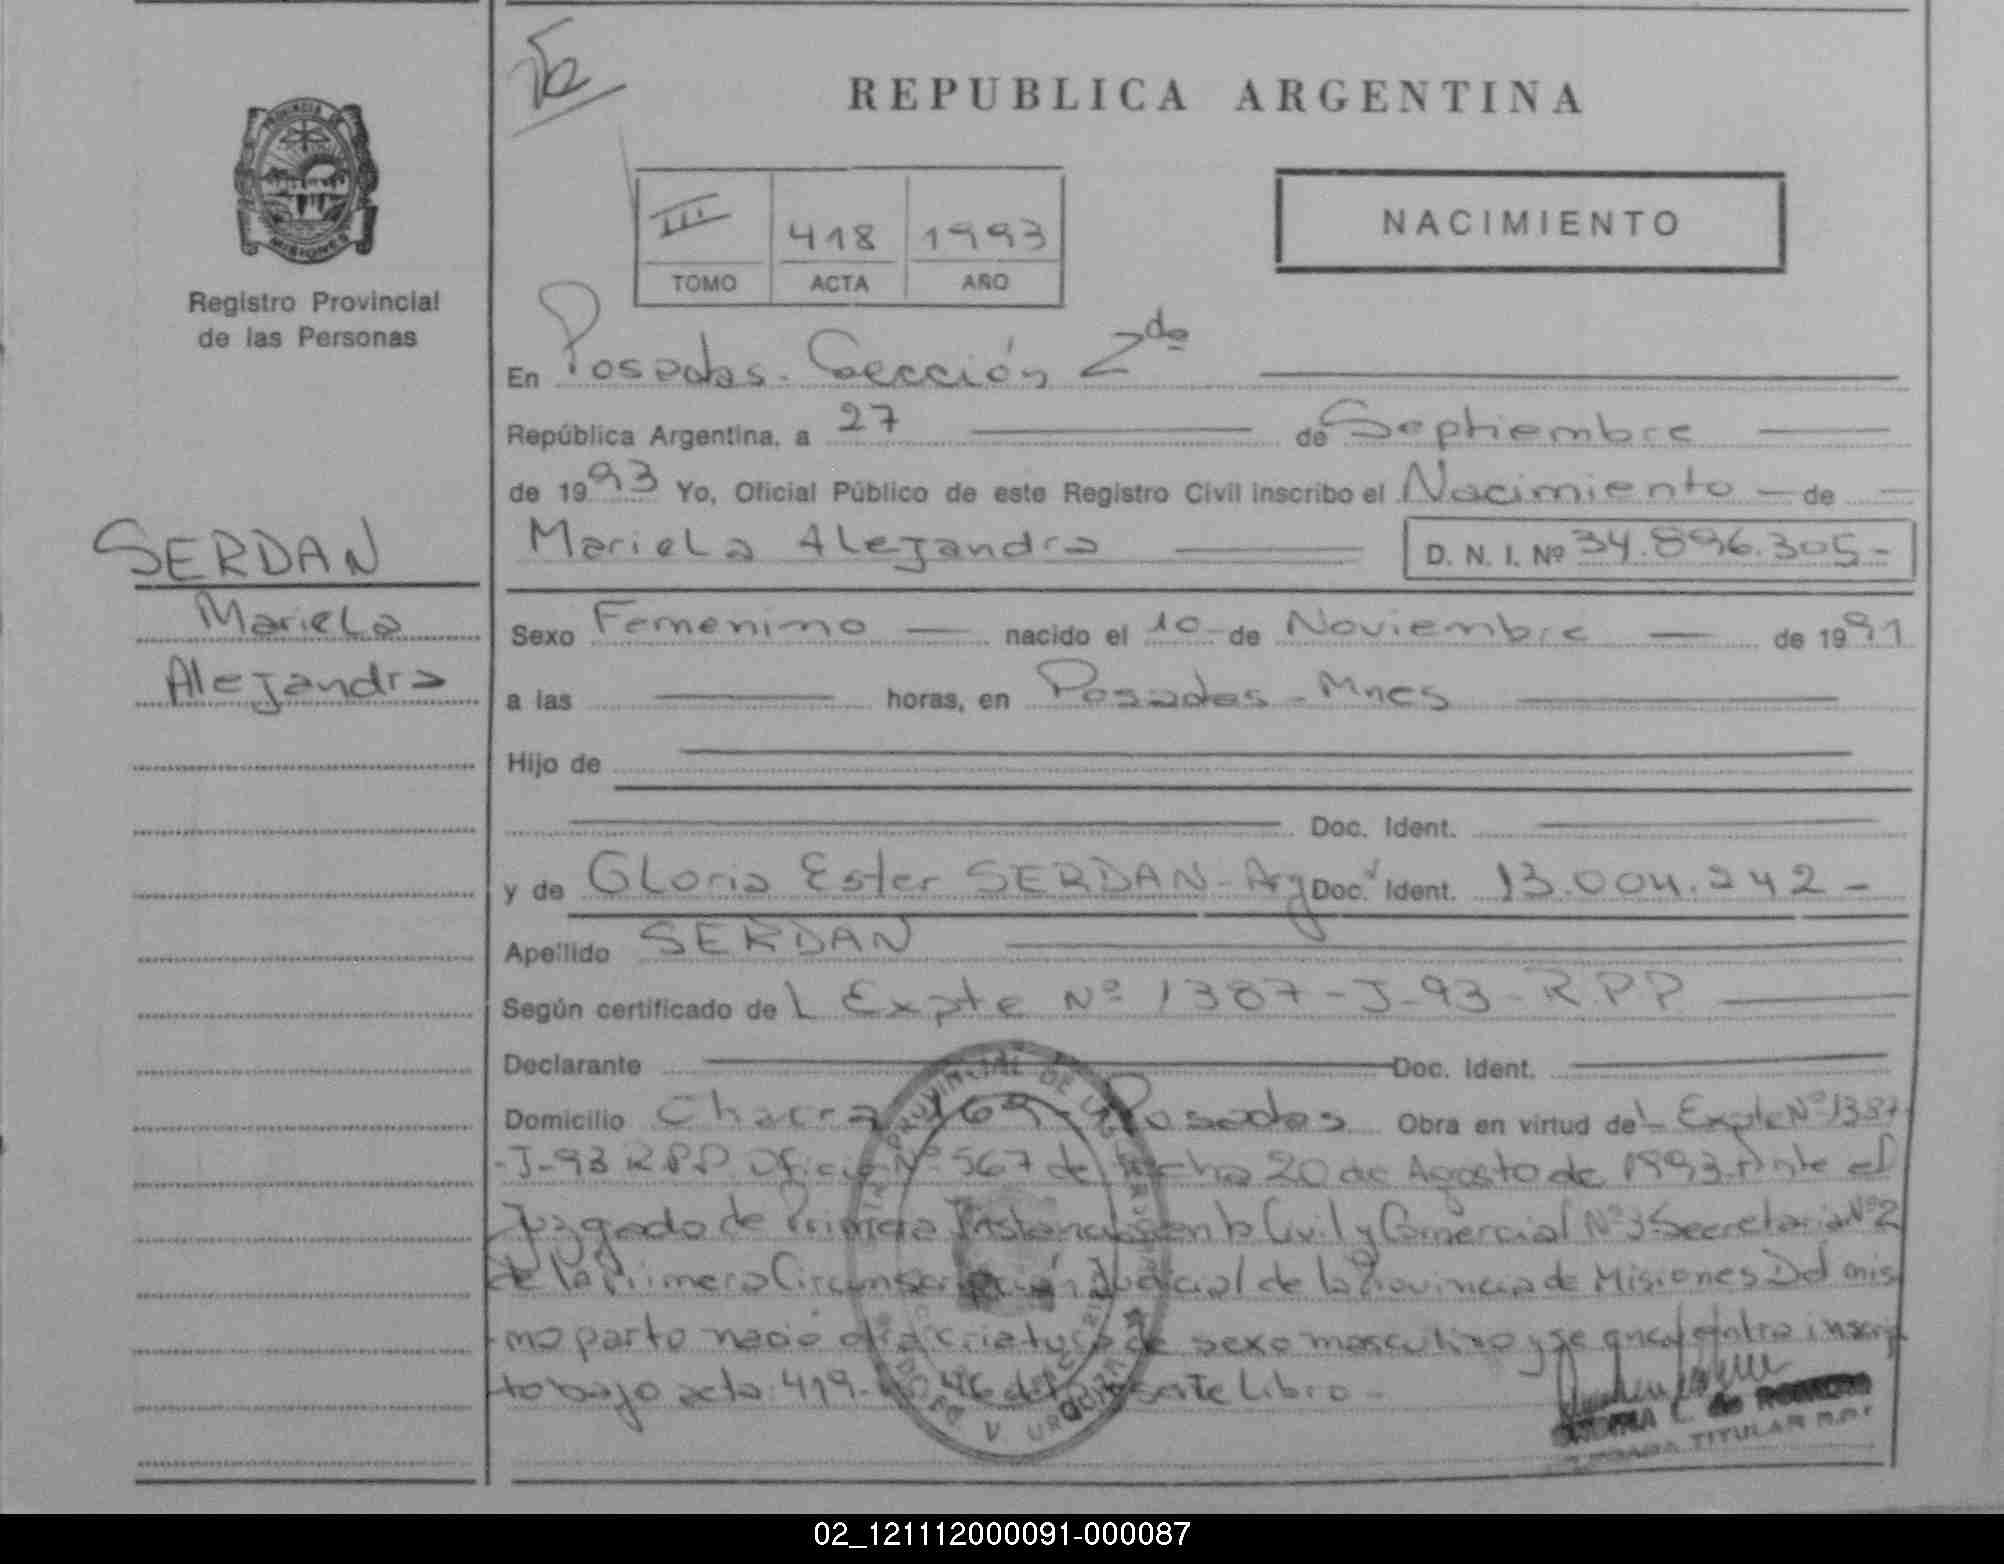 REPUBLICA ARGENTINA
PROVINCIA DE
MISIONES
Registro Provincial
de las Personas
III 418 1993
TOMO ACTA AÑO
NACIMIENTO
En Posadas. Sección 2da
República Argentina, a 27 de Septiembre
de 1993 Yo, Oficial Público de este Registro Civil inscribo el Nacimiento de
Mariela Alejandra D. N. I. Nº 34.896.305-
SERDAN
Mariela
Alejandra
Sexo Femenino nacido el 10 de Noviembre de 1991
a las horas, en Posadas - Mnes
Hijo de
Doc. Ident.
y de Gloria Ester SERDAN - Arg Doc. Ident. 13.004.242-
Apellido SERDAN
Según certificado de L Expte Nº 1387-J-93-R.P.P
Declarante Doc. Ident.
Domicilio Chacra 169 - Posadas Obra en virtud del Expte Nº 1387
-J-93 R.P.P. Oficio Nº 567 de fecha 20 de Agosto de 1993. Ante el
Juzgado de Primera Instancia en lo Civil y Comercial Nº 3 Secretaria Nº 2
de la Primera Circunscripción Judicial de la Provincia de Misiones Del mis
mo parto nació otra criatura de sexo masculino y se encuentra inscrip
to bajo acta: 419- del presente Libro -
TITULAR
02_121112000091-000087